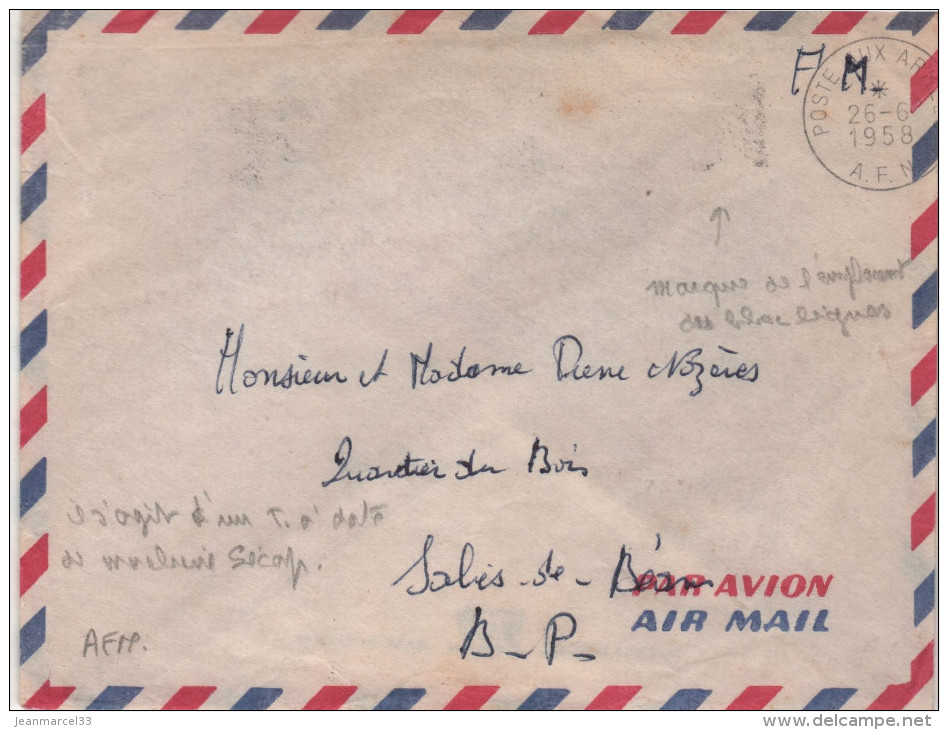 F M.
POSTE AUX AR
*
26-6
1958
A.F.N
marque de l'emplacement
des bloc lignes
Monsieur et Madame Pierre Nozères
Quartier du Bois
il s'agit d'un T. à date
de machine Secap.
Salies-de-Béarn
PAR AVION
B-P-
AIR MAIL
AFN.
jeanmarcel33
www.delcampe.net